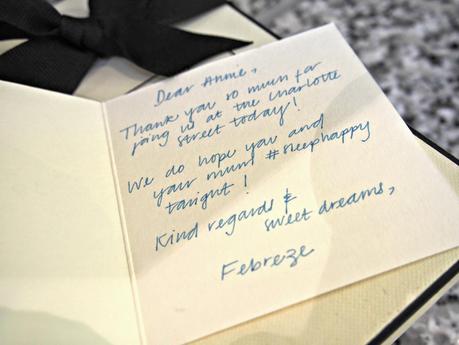 Dear Annie,
Thank you so much for
joing us at the Charlotte
street today!
We do hope you and
your mum #sleephappy
tonight!
Kind regards &
sweet dreams,
Febreze